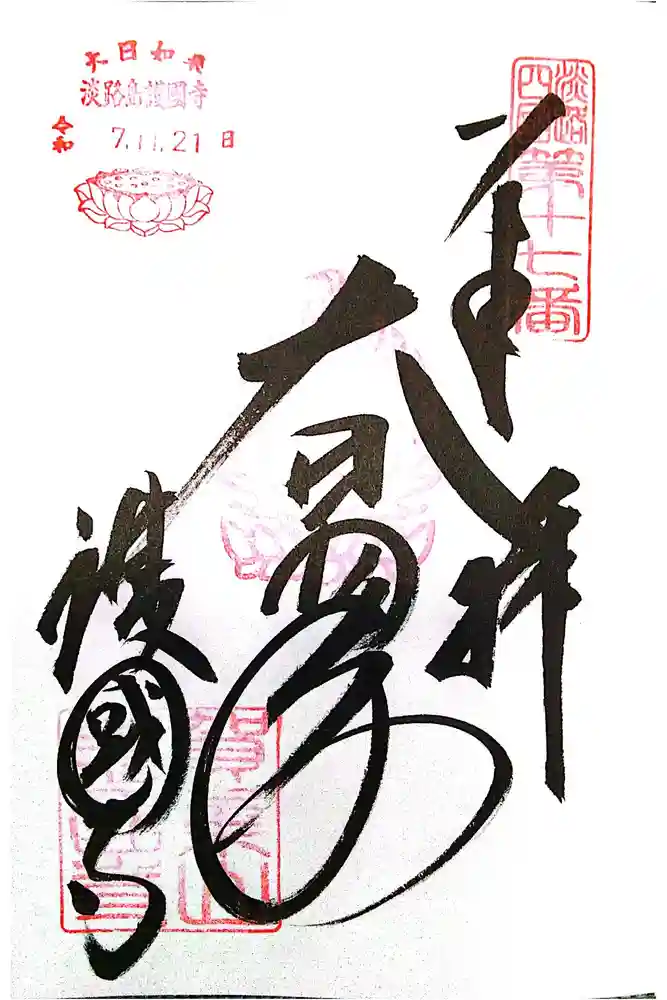 淡路
四国
第十七番
奉拝
大日如来
護國寺
日如
淡路島護國寺
令和 7.11.21日